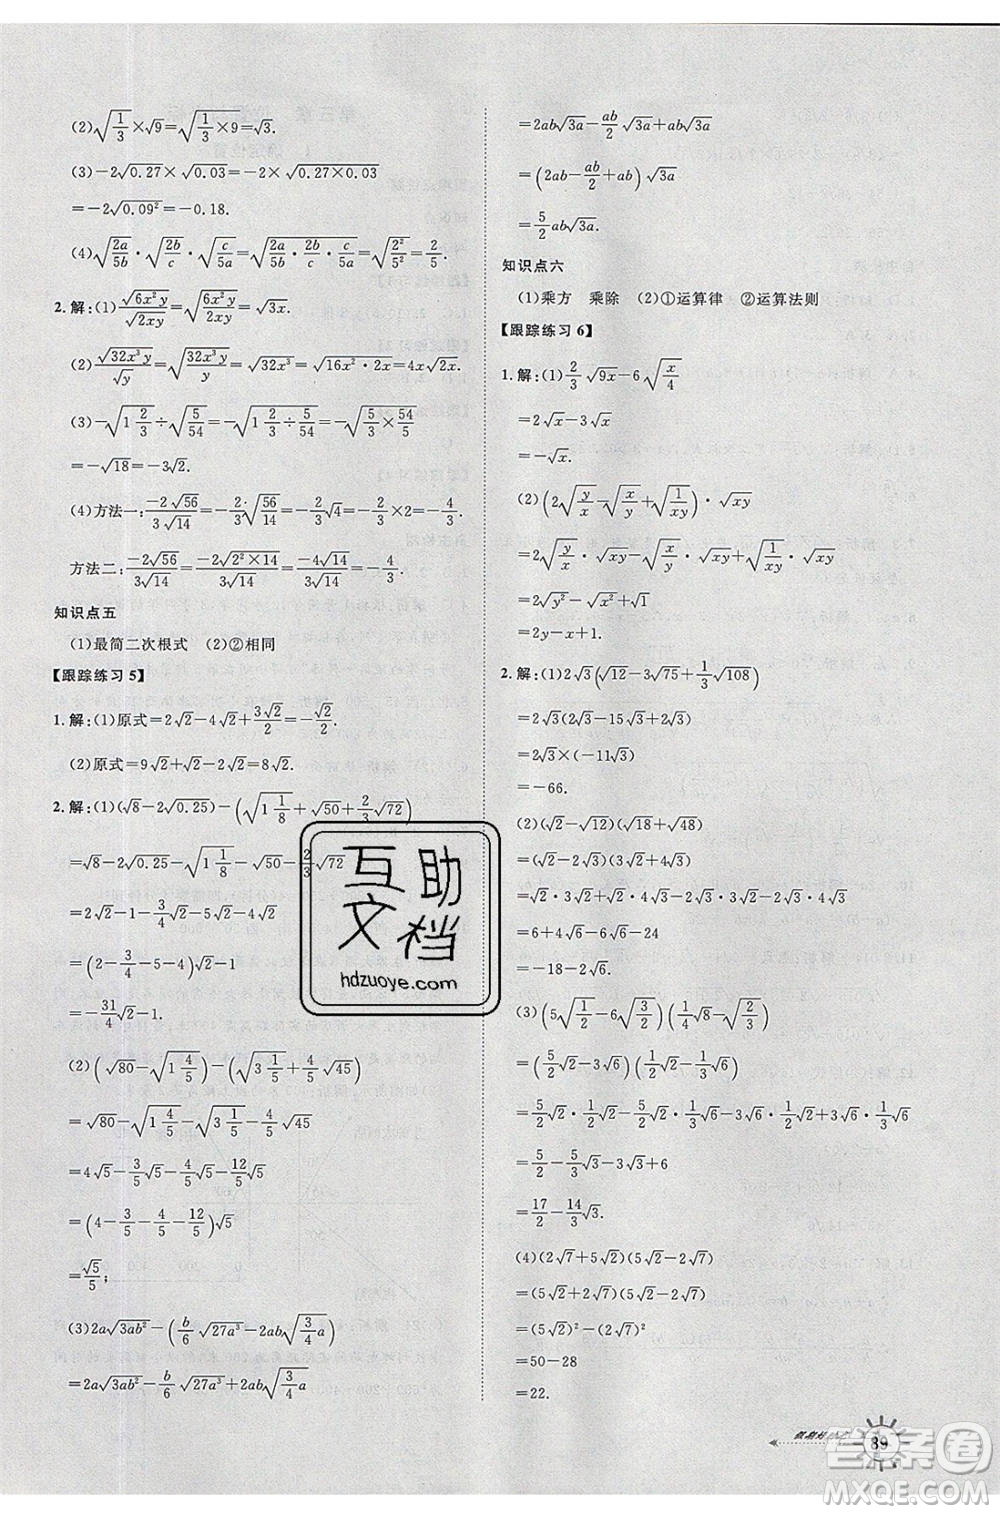 (2)√(1/3)×√9=√(1/3×9)=√3.
(3)-2√0.27×√0.03=-2×√(0.27×0.03)
=-2√(0.09²)=-0.18.
(4)√(2a/5b)·√(2b/c)·√(c/5a)=√(2a/5b·2b/c·c/5a)=√(2²/5²)=2/5.
2.解:(1)√(6x²y)/√(2xy)=√(6x²y/2xy)=√3x.
(2)√(32x³y)/√y=√(32x³y/y)=√(32x³)=√(16x²·2x)=4x√2x.
(3)-√(1 2/3)÷√(5/54)=-√(5/3÷5/54)=-√(5/3×54/5)
=-√18=-3√2.
(4)方法一:-2√56/3√14=-2/3·√(56/14)=-2/3√4=-2/3×2=-4/3.
方法二:-2√56/3√14=-2√(2²×14)/3√14=-4√14/3√14=-4/3.
知识点五
(1)最简二次根式 (2)②相同
【跟踪练习5】
1.解:(1)原式=2√2-4√2+3√2/2=-√2/2.
(2)原式=9√2+√2-2√2=8√2.
2.解:(1)(√8-2√0.25)-(√(1 1/8)+√50+2/3√72)
=√8-2√0.25-√(1 1/8)-√50-2/3√72
=2√2-1-3/4√2-5√2-4√2
=(2-3/4-5-4)√2-1
=-31/4√2-1.
(2)(√80-√(1 4/5))-(√(3 1/5)+4/5√45)
=√80-√(1 4/5)-√(3 1/5)-4/5√45
=4√5-3/5√5-4/5√5-12/5√5
=(4-3/5-4/5-12/5)√5
=√5/5;
(3)2a√(3ab²)-(b/6√(27a³)-2ab√(3/4 a))
=2a√(3ab²)-b/6√(27a³)+2ab√(3/4 a)
=2ab√3a-ab/2√3a+ab√3a
=(2ab-ab/2+ab)√3a
=5/2ab√3a.
知识点六
(1)乘方 乘除 (2)①运算律 ②运算法则
【跟踪练习6】
1.解:(1)2/3√9x-6√(x/4)
=2√x-3√x
=-√x.
(2)(2√(y/x)-√(x/y)+√(1/xy))·√xy
=2√(y/x)·√xy-√(x/y)·√xy+√(1/xy)·√xy
=2√y²-√x²+√1
=2y-x+1.
2.解:(1)2√3(√12-3√75+1/3√108)
=2√3(2√3-15√3+2√3)
=2√3×(-11√3)
=-66.
(2)(√2-√12)(√18+√48)
=(√2-2√3)(3√2+4√3)
=√2·3√2+√2·4√3-2√3·3√2-2√3·4√3
=6+4√6-6√6-24
=-18-2√6.
(3)(5√(1/2)-3√6)(1/4√8-√(2/3))
=(5/2√2-3√6)(1/2√2-1/3√6)
=5/2√2·1/2√2-5/2√2·1/3√6-3√6·1/2√2+3√6·1/3√6
=5/2-5/3√3-3√3+6
=17/2-14/3√3.
(4)(2√7+5√2)(5√2-2√7)
=(5√2+2√7)(5√2-2√7)
=(5√2)²-(2√7)²
=50-28
=22.
89
互助
文档
hdzuoye.com
答案卷
MXQE.COM